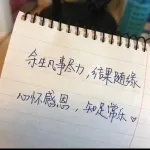 余生凡事尽力，结果随缘
心怀感恩，知足常乐。